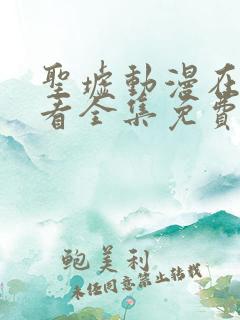 聖墟動漫在
看全集免費
鮑美利
未经同意禁止转载